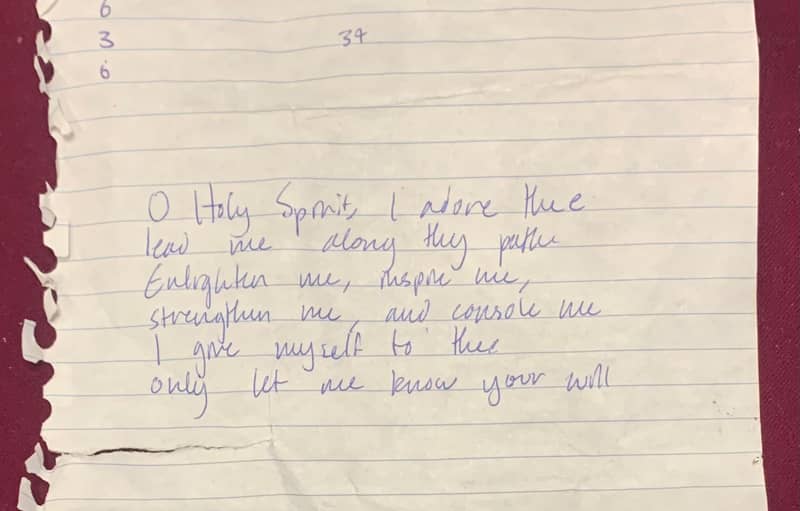 6
3 34
6
O Holy Spirit, I adore thee
lead me along thy paths
Enlighten me, inspire me,
strengthen me, and console me
I give myself to thee
only let me know your will